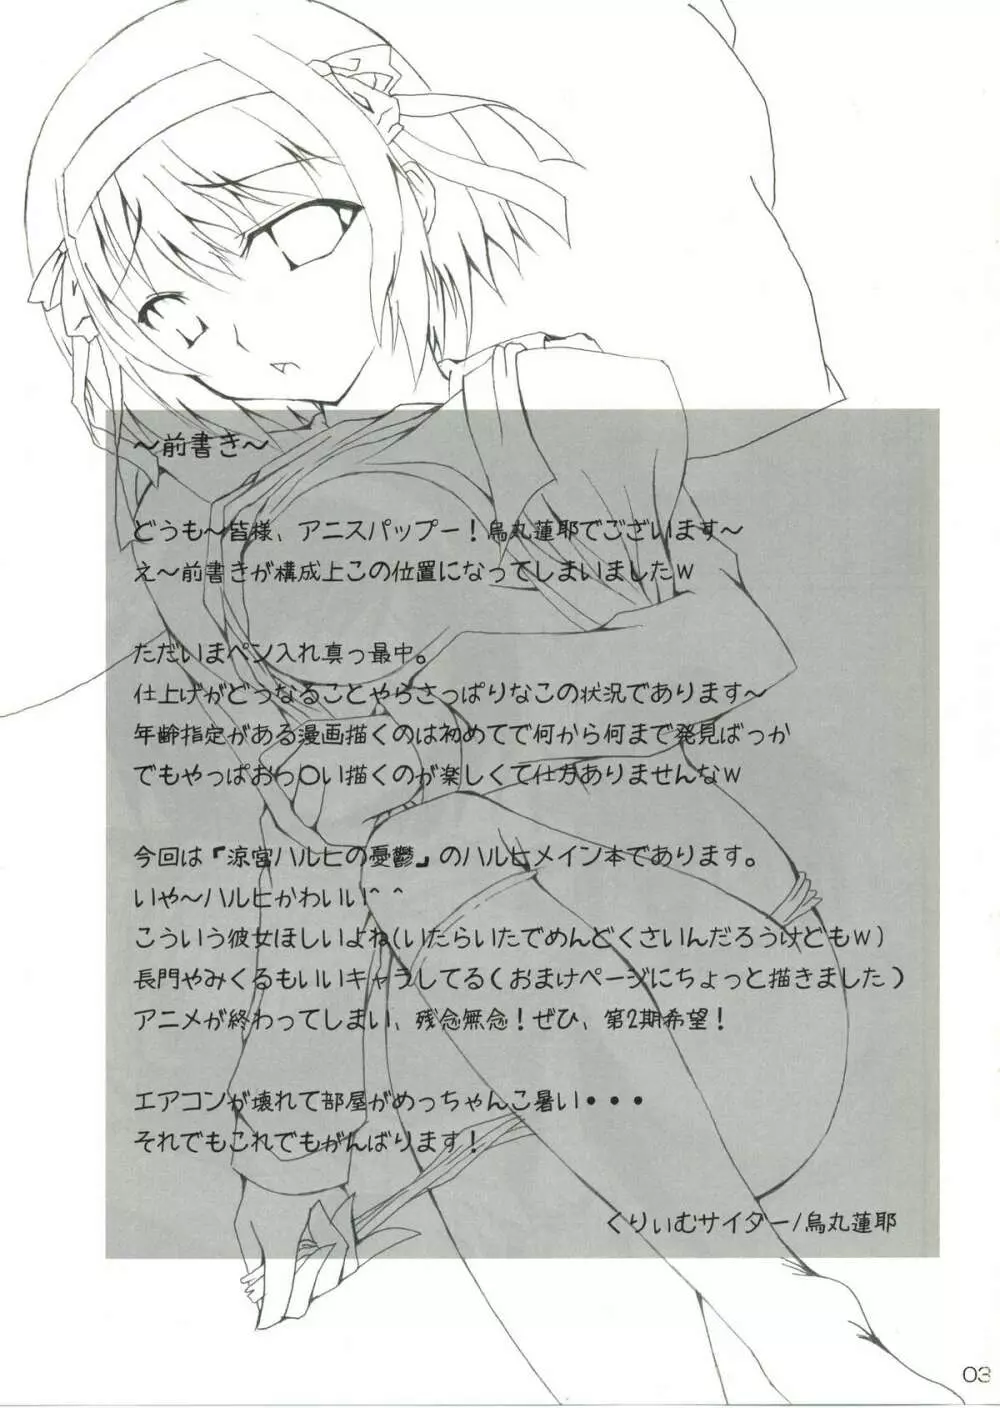 ～前書き～
どうも～皆様、アニスパップー！烏丸蓮耶でございます～
え～前書きが構成上この位置になってしまいましたｗ
ただいまペン入れ真っ最中。
仕上げがどうなることやらさっぱりなこの状況であります～
年齢指定がある漫画描くのは初めてで何から何まで発見ばっか
でもやっぱおっ○い描くのが楽しくて仕方ありませんなｗ
今回は『涼宮ハルヒの憂鬱』のハルヒメイン本であります。
いや～ハルヒかわいい＾＾
こういう彼女ほしいよね(いたらいたでめんどくさいんだろうけどもｗ)
長門やみくるもいいキャラしてる(おまけページにちょっと描きました)
アニメが終わってしまい、残念無念！ぜひ、第2期希望！
エアコンが壊れて部屋がめっちゃんこ暑い・・・
それでもこれでもがんばります！
くりぃむサイダー/烏丸蓮耶
03